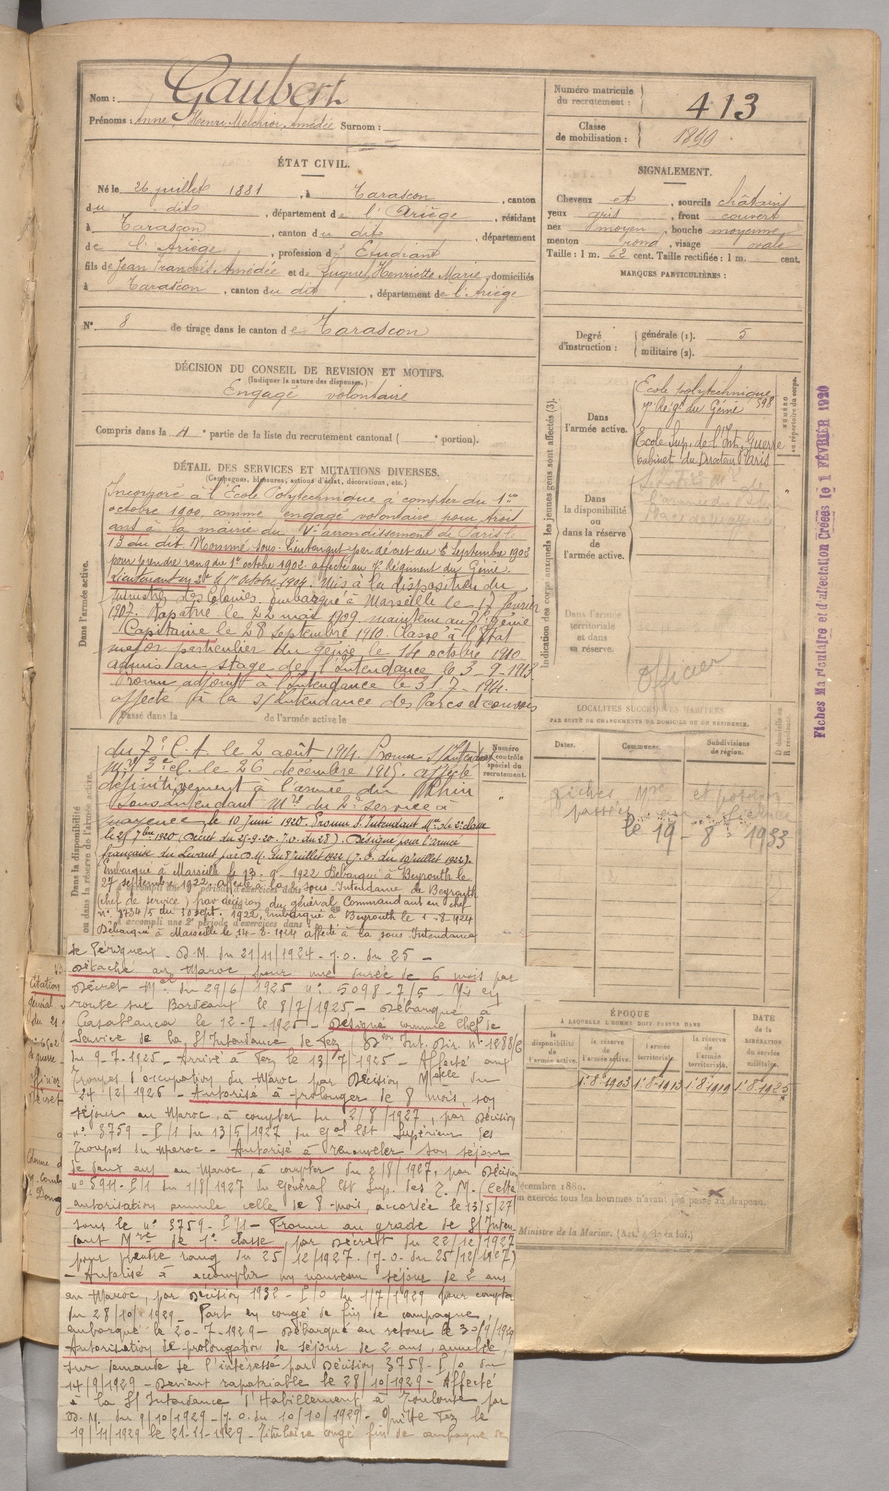 Nom : Gaubert
Prénoms : Anne, Henri Melchior Amédée Surnom :
Numéro matricule du recrutement : 413
Classe de mobilisation : 1899
ÉTAT CIVIL.
Né le 26 juillet 1881, à Tarascon, canton
du dit, département de l'Ariège, résidant
à Tarascon, canton du dit, département
de l'Ariège, profession d'Etudiant
fils de Jean François Amédée et de Henriette Marie, domiciliés
à Tarascon, canton du dit, département de l'Ariège
N° 8 de tirage dans le canton de Tarascon
SIGNALEMENT.
Cheveux et, sourcils châtains
yeux gris, front couvert
nez moyen, bouche moyenne
menton rond, visage ovale
Taille : 1 m. 62 cent. Taille rectifiée : 1 m. cent.
MARQUES PARTICULIÈRES :
Degré d'instruction : générale (1). 5
militaire (2).
DÉCISION DU CONSEIL DE REVISION ET MOTIFS.
(Indiquer la nature des dispenses.)
Engagé volontaire
Compris dans la 4e partie de la liste du recrutement cantonal ( e portion).
DÉTAIL DES SERVICES ET MUTATIONS DIVERSES.
(Campagnes, blessures, actions d'éclat, décorations, etc.)
Dans l'armée active.
Incorporé à l'École Polytechnique à compter du 1er
octobre 1900 comme engagé volontaire pour trois
ans à la mairie du Ve arrondissement de Paris le
13 du dit. Nommé sous-lieutenant par décret du 6 Septembre 1902
pour prendre rang du 1er octobre 1902 affecté au 7e Régiment du Génie.
Lieutenant en 2d le 1er octobre 1904. Mis à la disposition du
Ministre des Colonies, embarqué à Marseille le 17 février
1907. Rapatrié le 22 mai 1909 maintenu au 7e Génie
Capitaine le 28 septembre 1910. Classé à l'Etat
major particulier du génie le 14 octobre 1910
admis au stage de l'Intendance le 3-9-1913.
Promu adjoint à l'Intendance le 31 7-1914.
affecté à la s/Intendance des Parcs et convois
Passé dans la de l'armée active le
Dans la disponibilité ou dans la réserve de l'armée active.
du 7e C.A. le 2 août 1914. Promu S/Intendant
Mre 3e cl. le 26 décembre 1915. affecté
définitivement à l'armée du Rhin
Sous-intendant Mre du 2e service à
Mayence le 10 Juin 1920. Promu S. Intendant Mre de 2e classe
le 25 7bre 1920 (Décret du 25-9-20. J.O. du 28). Désigné pour l'armée
française du Levant par D.M. du 8 juillet 1922 (J.O. du 10 juillet 1922).
Embarqué à Marseille le 13-9-1922 Débarqué à Beyrouth le
27 septembre 1922. affecté à la sous-Intendance de Beyrouth
(chef de service) par décision du général Commandant en chef
n° 3734/5 du 30 sept. 1922, embarqué à Beyrouth le 1-8-1924
Débarqué à Marseille le 14-8-1924 affecté à la sous Intendance
de Périgueux - D.M. du 21/11/1924 - J.O. du 25 -
Détaché au Maroc pour une durée de 6 mois par
Décret Mel du 29/6/1925 n° 5098-7/5 - Mis en
route sur Bordeaux le 8/7/1925 - Débarqué à
Casablanca le 12-7-1925 - Désigné comme Chef de
Service de la S/Intendance de Fez / Don Int. Dir. n° 1288/6
du 9-7-1925 - Arrivé à Fez le 13/7/1925 - Affecté aux
Troupes d'occupation du Maroc par Décision Melle du
24/12/1925 - Autorisé à prolonger de 8 mois, son
séjour au Maroc, à compter du 2/8/1927, par Décision
n° 3759-E/1 du 13/5/1927 du Gal Ct Supérieur des
Troupes du Maroc - Autorisé à renouveler son séjour
de deux ans au Maroc, à compter du 2/8/1927, par Décision
n° 5911-E/1 du 1/8/1927 du Général Ct Sup. des T.M. (Cette
autorisation annule celle de 8 mois, accordée le 13/5/27
sous le n° 3759-E/1) - Promu au grade de S/Inten-
dant Mre de 1e classe, par Décret du 22/12/1927
pour prendre rang du 25/12/1927 (J.O. du 25/12/1927)
- Autorisé à accomplir un nouveau séjour de 2 ans
au Maroc, par Décision 1932-E/0 du 1/7/1929 pour compter
du 28/10/1929 - Part en congé de fin de campagne,
embarqué le 20-7-1929 - Débarqué au retour le 30/9/1929
Autorisation de prolongation de séjour de 2 ans, annulée,
sur demande de l'intéressé par Décision 3758-E/0 du
14/9/1929 - Devient rapatriable le 28/10/1929 - Affecté
à la S/Intendance d'Habillement à Toulouse par
D.M. du 9/10/1929 - J.O. du 10/10/1929 - Quitte Fez le
19/11/1929 le 21-11-1929 - Titulaire congé fin de campagne de
Indication des corps auxquels les jeunes gens sont affectés (3).
NUMÉRO au répertoire du corps.
Dans l'armée active.
Ecole polytechnique
7e Régt du Génie 598
Ecole Sup. de l'Int. Guerre
Cabinet du Directeur Paris
Dans la disponibilité ou dans la réserve de l'armée active.
Dans l'armée territoriale et dans sa réserve.
Officier
LOCALITÉS SUCCESSIVES HABITÉES
PAR SUITE DE CHANGEMENTS DE DOMICILE OU DE RÉSIDENCE.
Dates. Communes. Subdivisions de région. D domicile ou R résidence.
Numéro du contrôle spécial du recrutement.
fiches Mre
le 19-8-1933
ÉPOQUE
À LAQUELLE L'HOMME DOIT PASSER DANS
la disponibilité de l'armée active. la réserve de l'armée active. l'armée territoriale. la réserve de l'armée territoriale. DATE de la LIBÉRATION du service militaire.
1.8.1903 1.8.1913 1.8.1919 1.8.1925
décembre 1880.
Ministre de la Marine. (Art. 4 de la loi.)
Fiches Matriculaire et d'affectation Créées le 1 FÉVRIER 1920
Citation